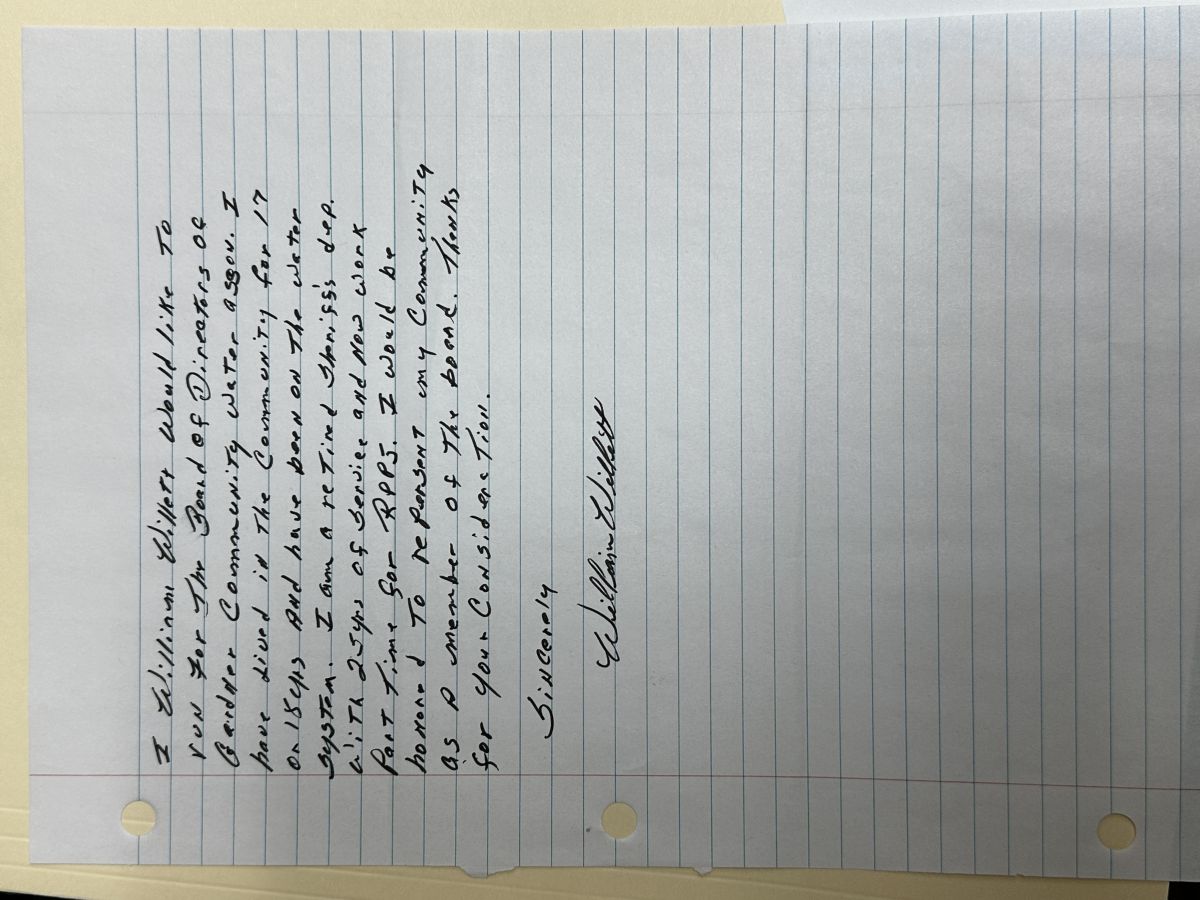 I William Willett Would like To
run For The Board of Directors of
Community Water assou. I
have Lived in The Community for 17
or 18 yrs And have been on The water
System. I am a retired Sheriff's dep.
with 25yrs of Service and Now work
Part Time for RPPJ. I Would be
honored To repersent my Community
as A member of The board. Thanks
for your Consideration.
Sincerely
William Willett